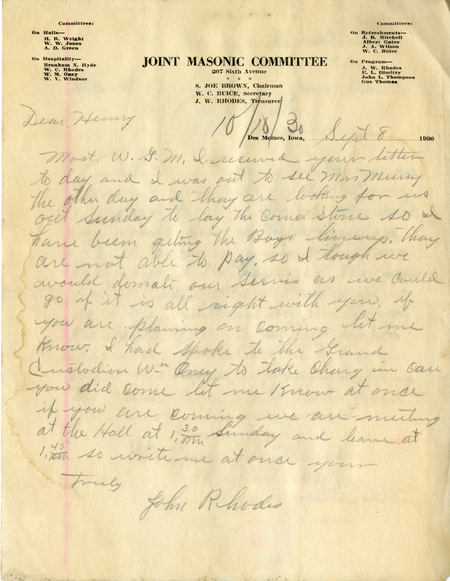 Committees:
On Halls—
H. R. Wright
W. W. Jones
A. D. Green
On Hospitality—
Branham N. Hyde
W. C. Rhodes
W. M. Oney
W. V. Windsor
Committees:
On Refreshments—
J. B. Mitchell
Albert Gater
J. A. Wilson
W. C. Buice
On Program—
J. W. Rhodes
E. L. Dimitry
John L. Thompson
Gus Thomas
JOINT MASONIC COMMITTEE
207 Sixth Avenue
S. JOE BROWN, Chairman
W. C. BUICE, Secretary
J. W. RHODES, Treasurer
Dear Henry
10/18/30
Des Moines, Iowa, Sept 8 1930
Most. W. G. M. I received your letter
to day and I was out to see Mrs Murray
the other day and thay are looking for us
out Sunday to lay the Corner Stone so I
have been geting the Boys lineup. thay
are not able to pay. so I tough we
would donate our servis as we could
go if it is all right with you. if
you are planing on coming let me
Know. I had spoke to the Grand
Custodion Wm Oney to take Charg in case
you did come let me Know at once
if you are coming we are meeting
at the Hall at 1.30 PM Sunday and leave at
1.45 PM so write me at once your
Truly
John Rhodes